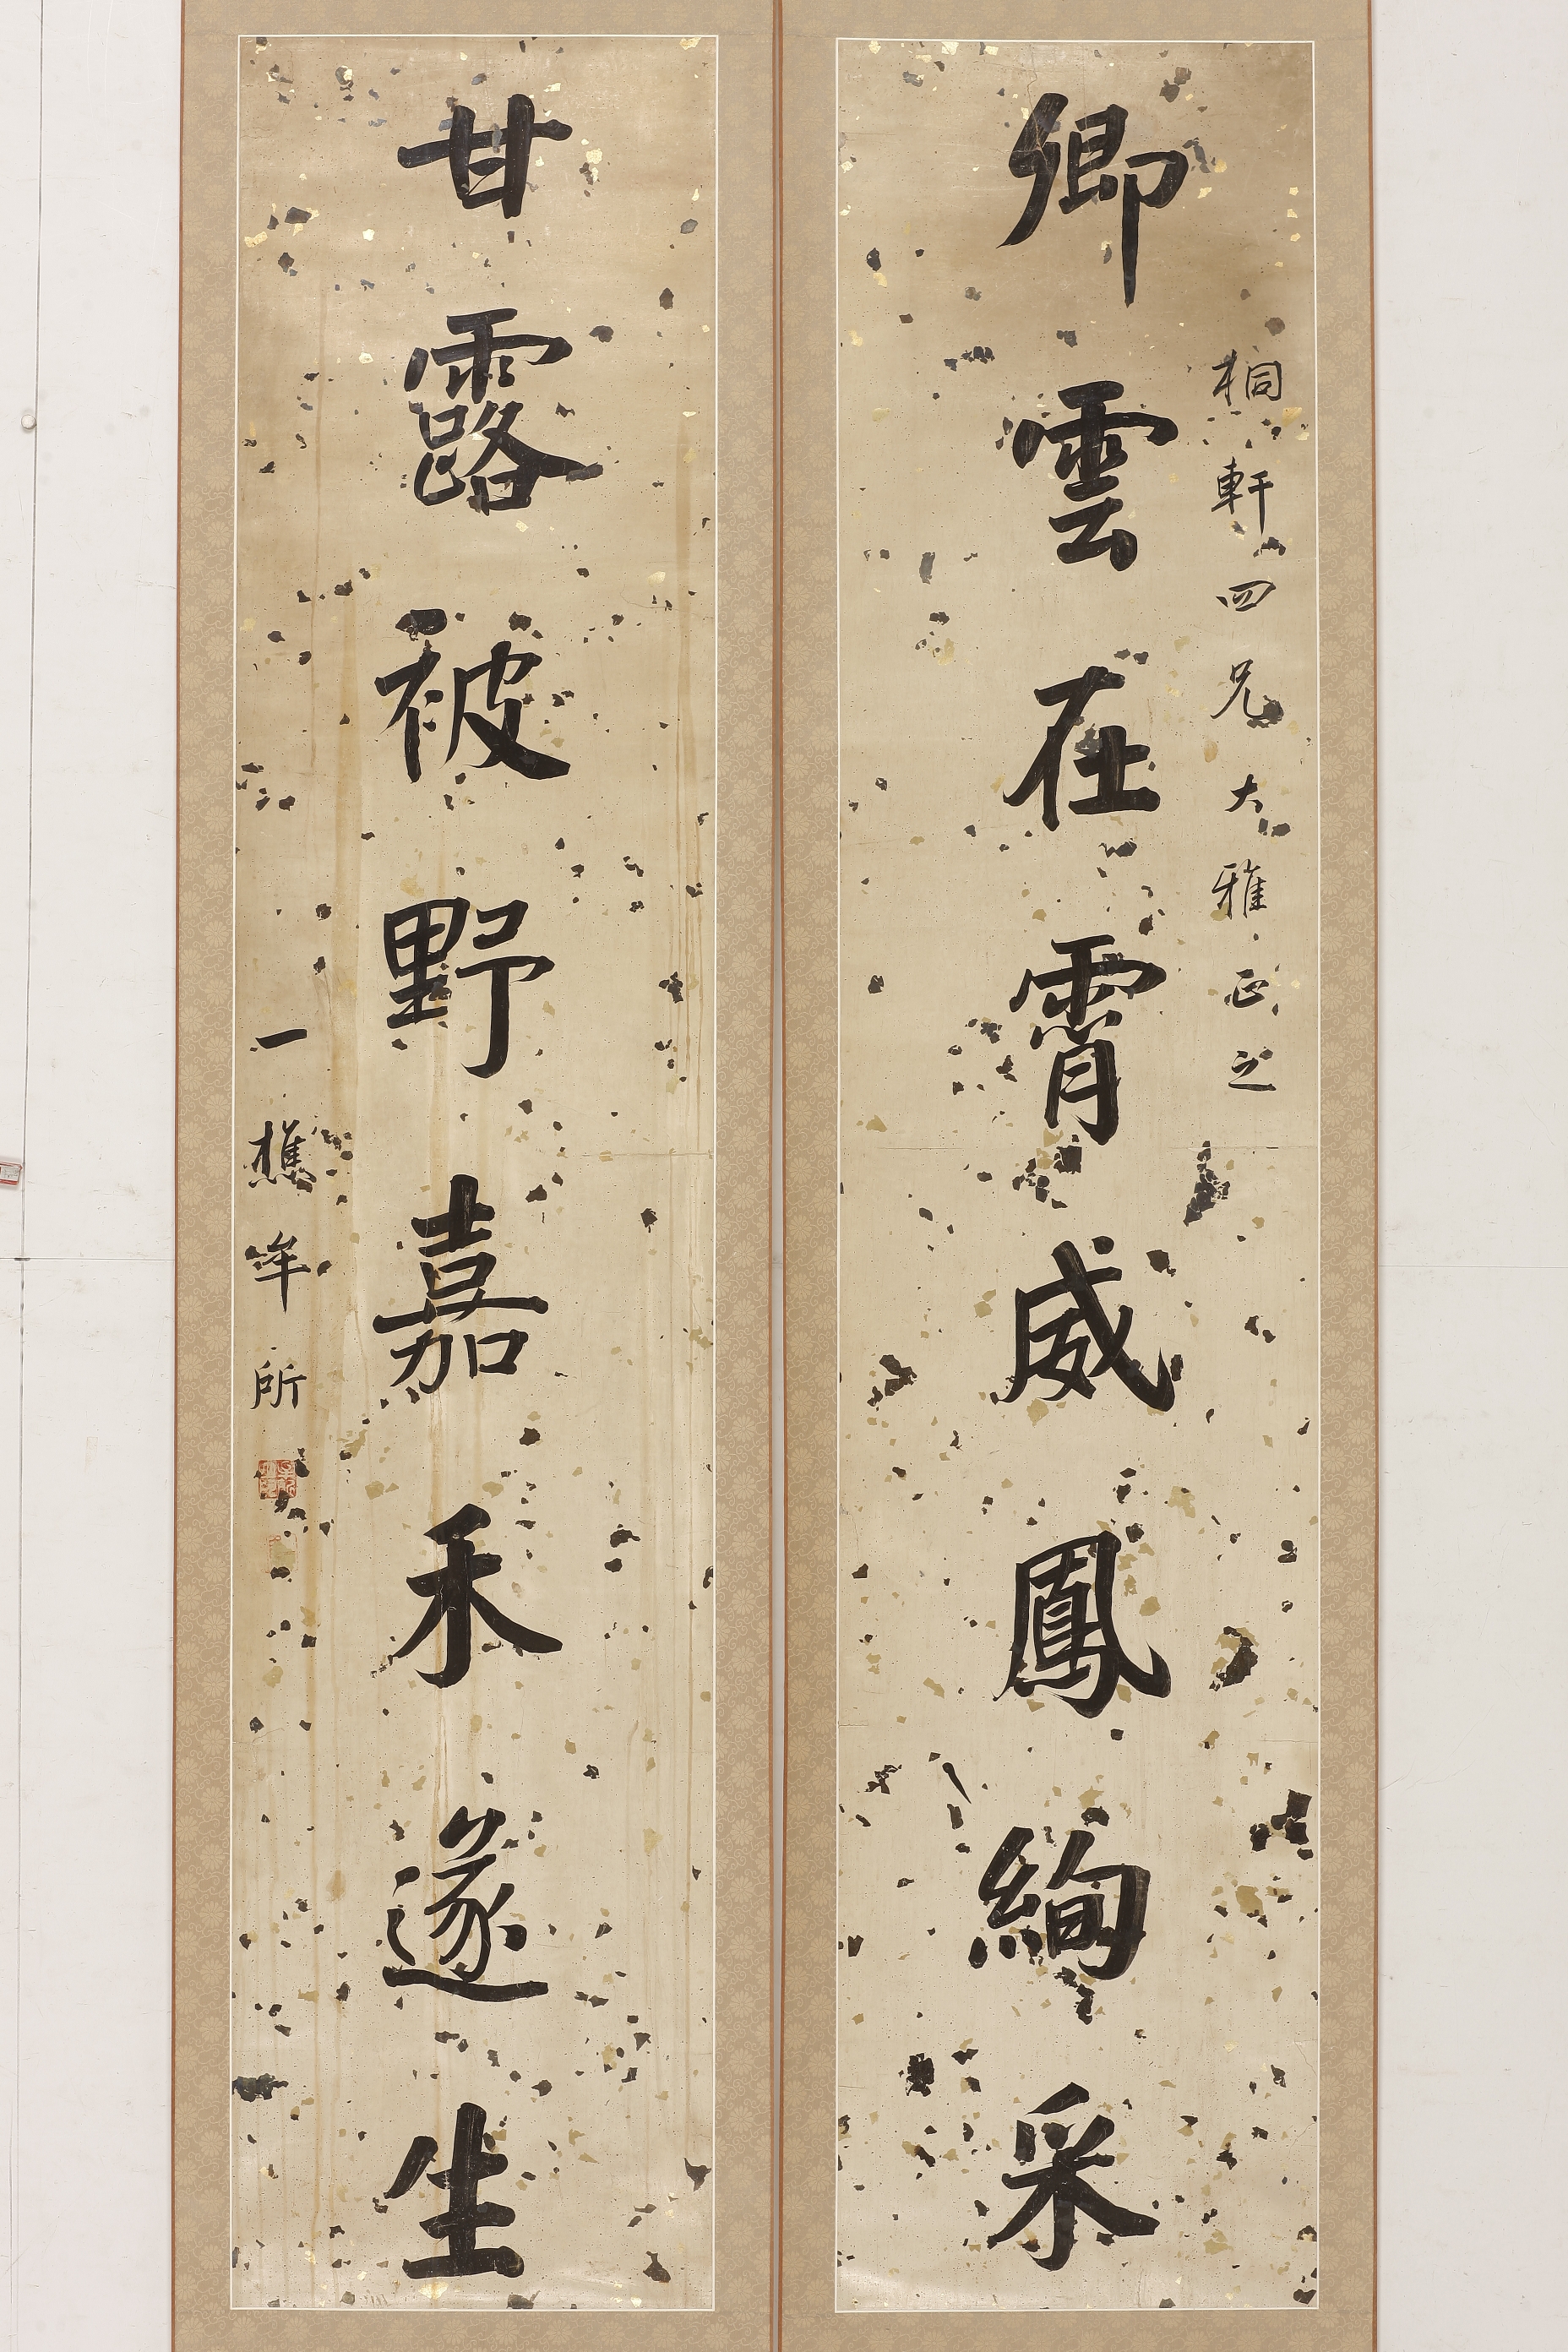 桐軒四兄大雅正之
卿雲在霄威鳳絢采
甘露被野嘉禾遂生
一樵牟所